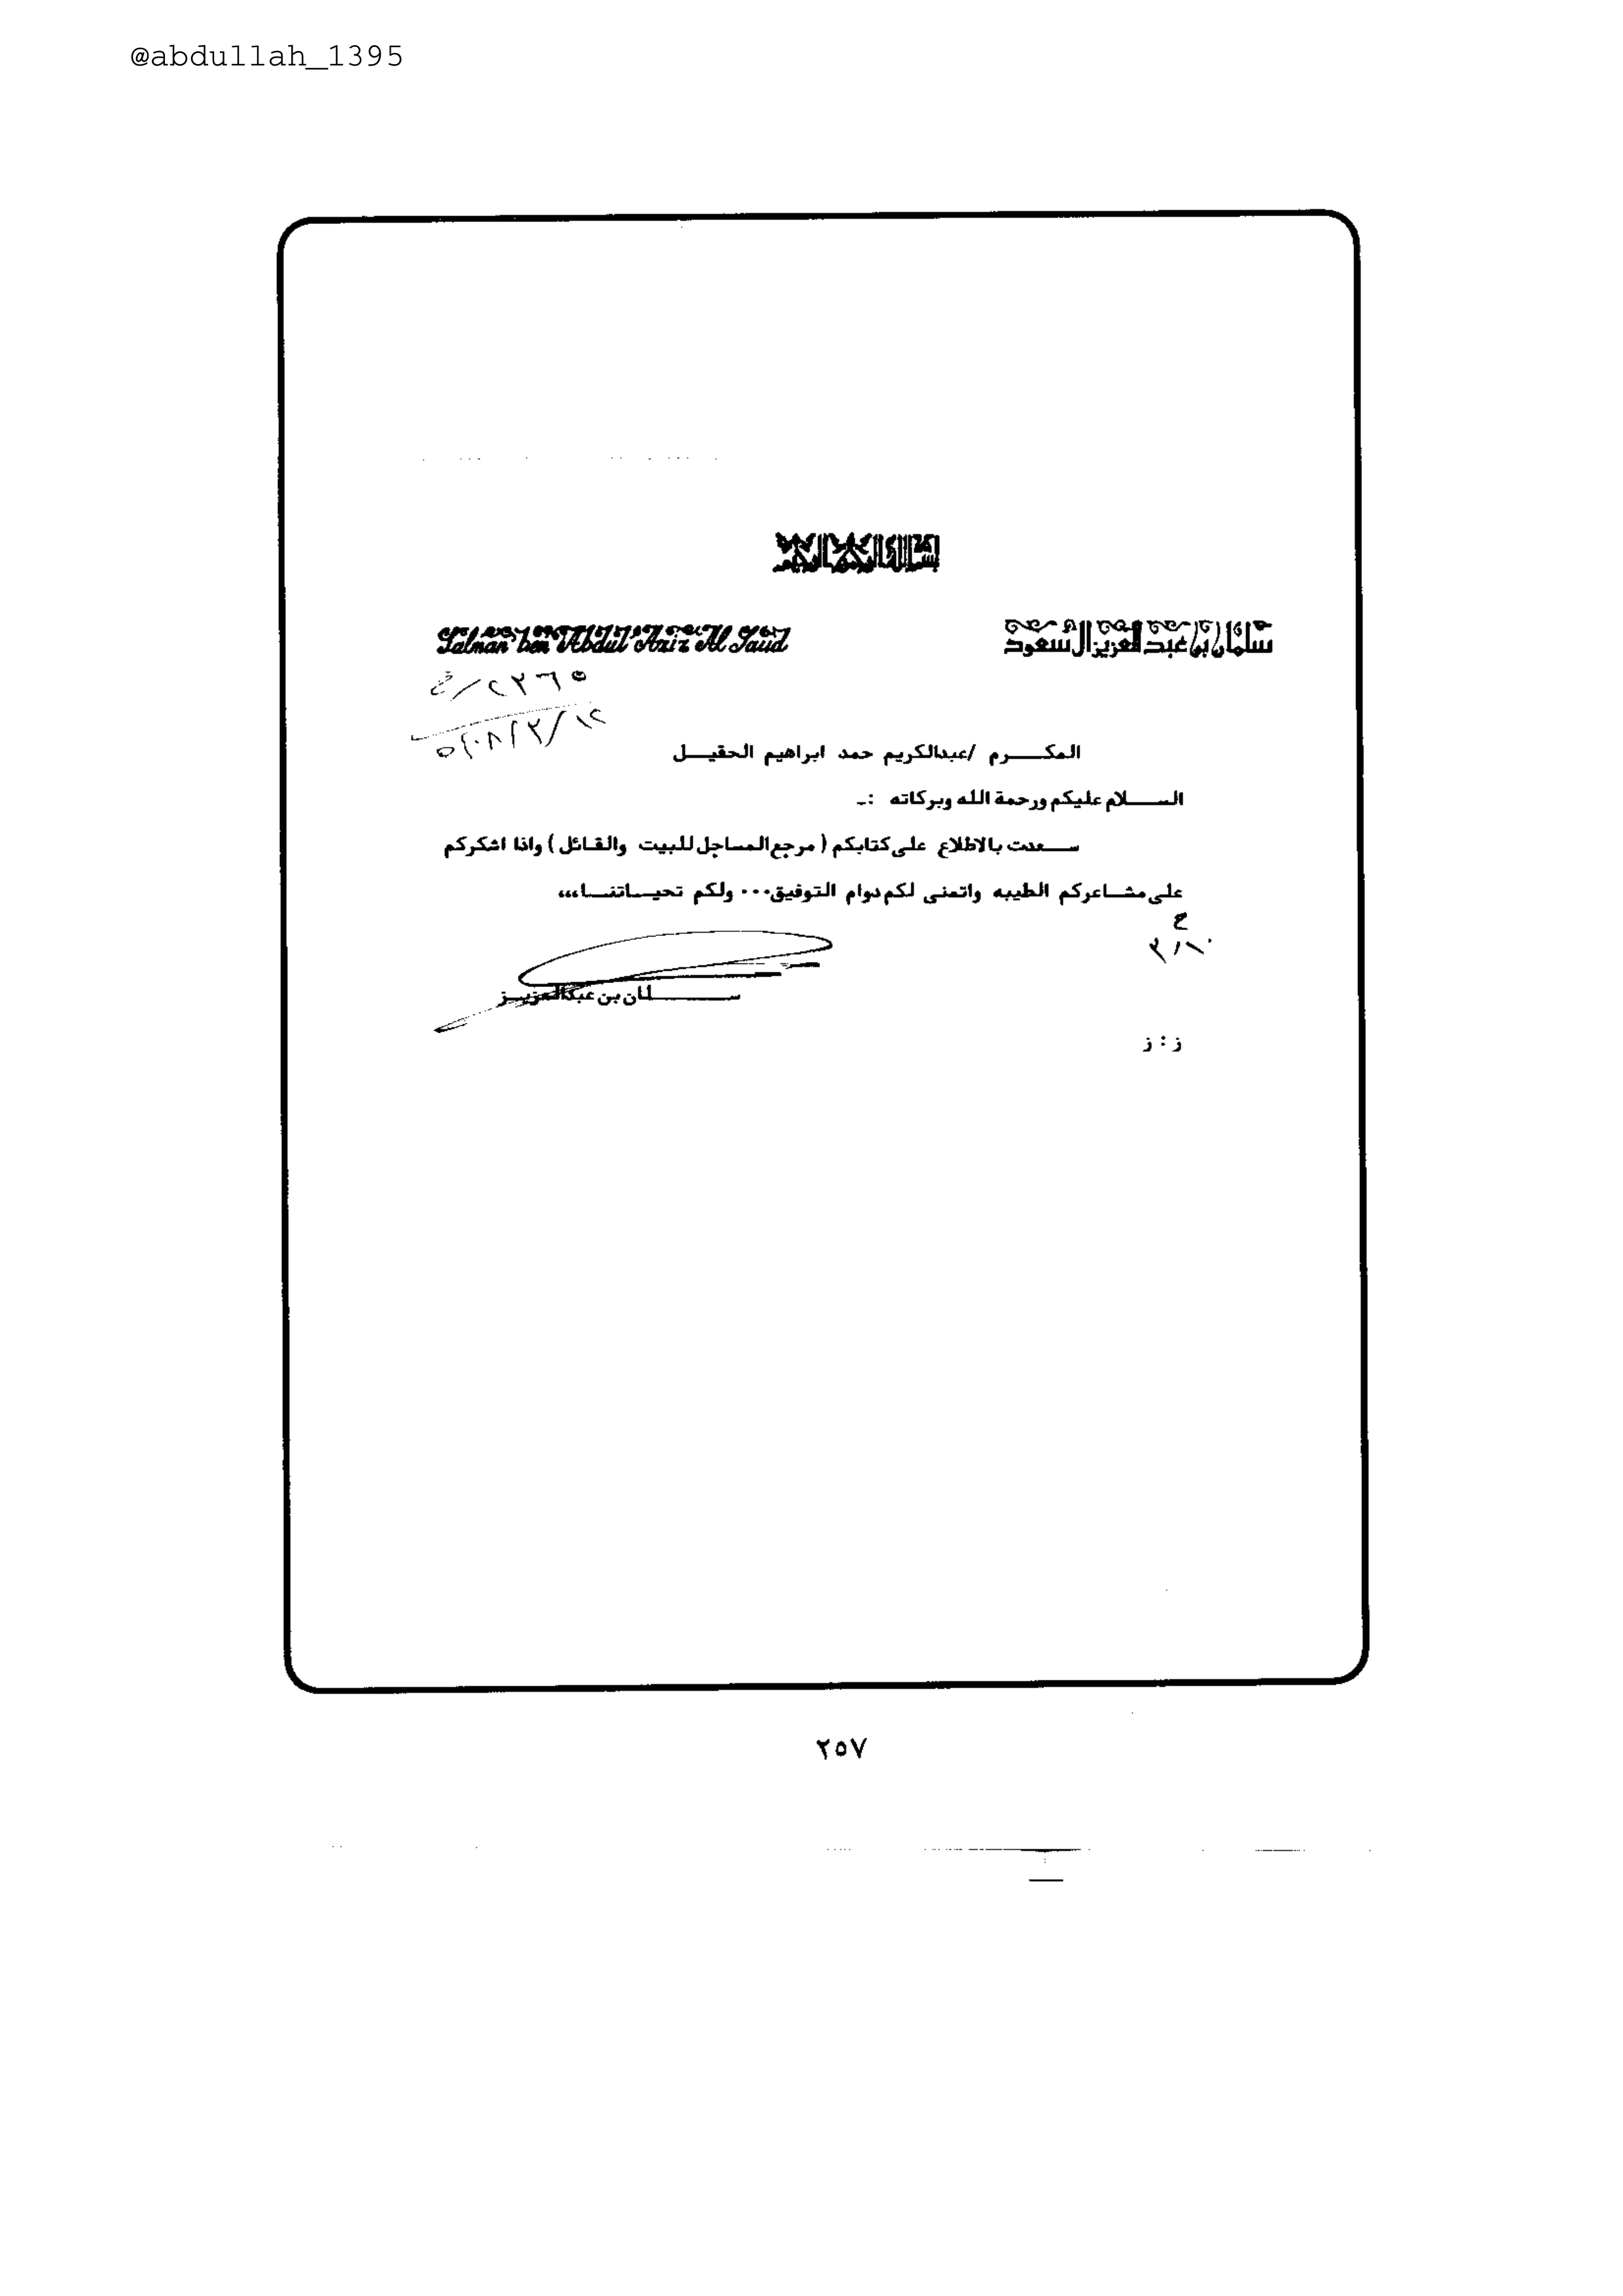 @abdullah_1395
بسم الله الرحمن الرحيم
سلمان بن عبد العزيز آل سعود
Salman ben Abdul Aziz Al Saud
المكـــرم /عبدالكريم حمد ابراهيم الحقيــل
الســـلام عليكم ورحمة الله وبركاته :ـ
ســعدت بالاطلاع على كتابكم ( مرجع المساجل للبيت والقائل ) واذا اشكركم
على مشــاعركم الطيبه واتمنى لكم دوام التوفيق... ولكم تحيــاتنــا،،،
ســـــلمان بن عبدالعزيــز
ز : ز
٢٥٧